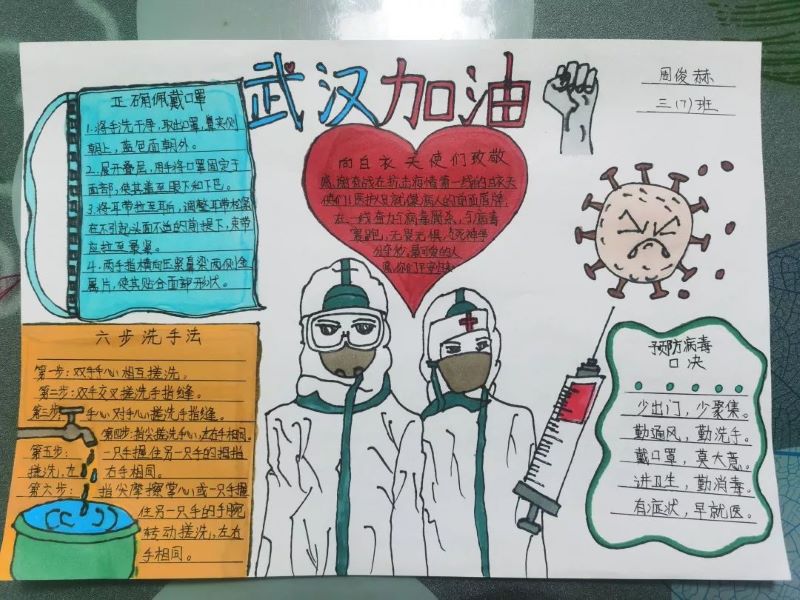 武汉加油
周俊赫
三(7)班
正确佩戴口罩
1.将手洗干净,取出口罩,鼻夹侧
朝上,蓝色面朝外。
2.展开叠层,用手将口罩固定于
面部,使其盖至眼下和下巴。
3.将耳带拉至耳后,调整耳带松紧
在不引起头面不适的前提下,束带
应拉至最紧。
4.两手指横向压紧鼻梁两侧金
属片,使其贴合面部形状。
向白衣天使们致敬
感谢奋战在抗击疫情第一线的白衣天
使们!医护人员就像病人的
在一线奋力与病毒
赛跑,无畏无惧,与死神争
最可爱的人
六步洗手法
第一步:双手手心相互搓洗。
第二步:双手交叉搓洗手指缝。
第三步 手心对手心搓洗手指缝。
第四步:指尖搓洗手心,左右手相同。
第五步: 一只手握住另一只手的拇指
搓洗,左 右手相同。
第六步: 指尖摩擦掌心或一只手握
住另一只手的手腕
转动搓洗,左右
手相同。
预防病毒
口决
少出门,少聚集。
勤通风,勤洗手。
戴口罩,莫大意。
讲卫生,勤消毒。
有症状,早就医。